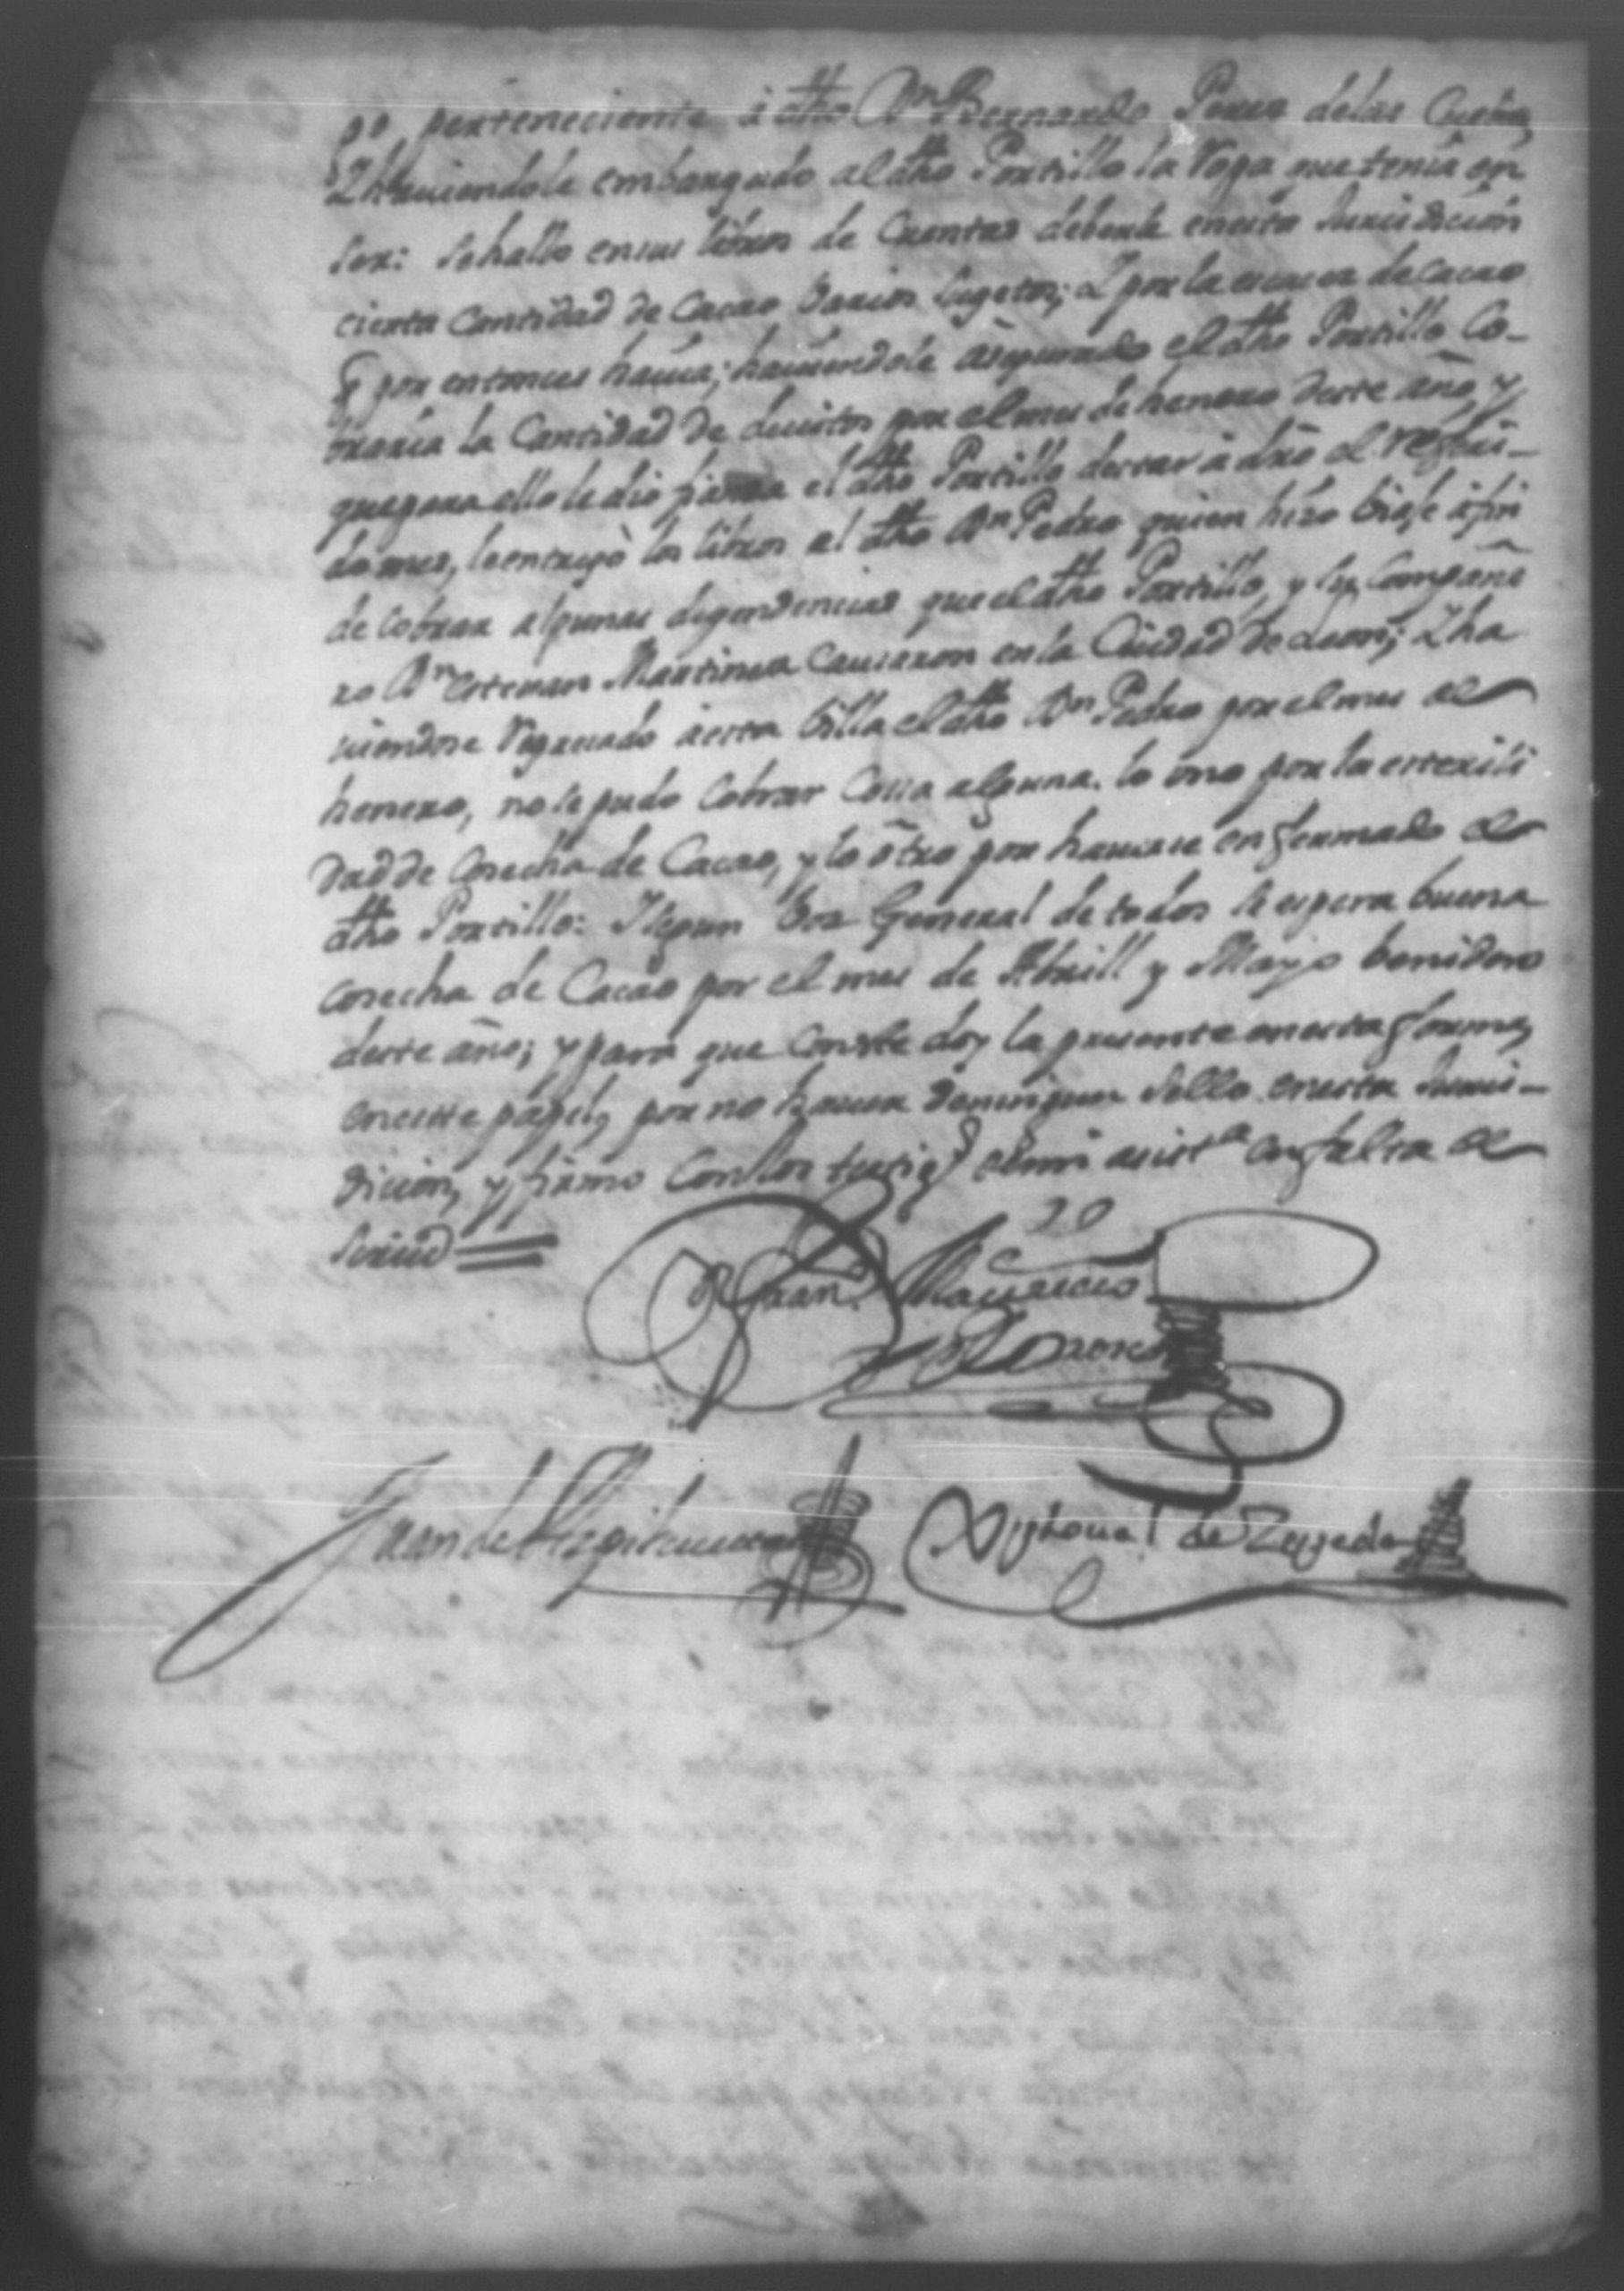 po perteneciente â dho Dn Bernardo Perez delas Cueba,
Y haviendole embargado al dho Portillo la Ropa que tenia en
ser: se hallo en sus libros de Cuentas deberle en esta Jurisdicion
cierta Cantidad de Cacao varios Sugetos; Y por la escasez de cacao
q por entonces havia; haviendole asegurado el dho Portillo Co-
braria la Cantidad de ducitos por el mes de henero deste año, y
que para ello le dio fianza el dho Portillo de estar â dro el referi-
do mes, le entregò los libros al dho Dn Pedro quien hizo biaje â fin
de Cobrar algunas dependencias que el dho Portillo, y su Compañe
ro Dn Estevan Martinez Causaron en la Ciudad de Leon; Y ha
viendose Regresado â esta Billa el dho Dn Pedro por el mes de
henero, no se pudo Cobrar Cosa alguna. lo uno por la esterili
dad de Cosecha de Cacao, y lo ôtro por haverse enfermado el
dho Portillo: Y segun Voz General de todos se espera buena
cosecha de Cacao por el mes de Abrill y Mayo benidero
deste año; y para que Conste doy la presente en esta forma,
en este papel, por no haver de ningun Sello en esta Juris-
dicion, y firmo Con los testigs de mi asista en falta de
Scrivno
Dn Franco Mauricio
Juan de
Xptoual de Zepeda